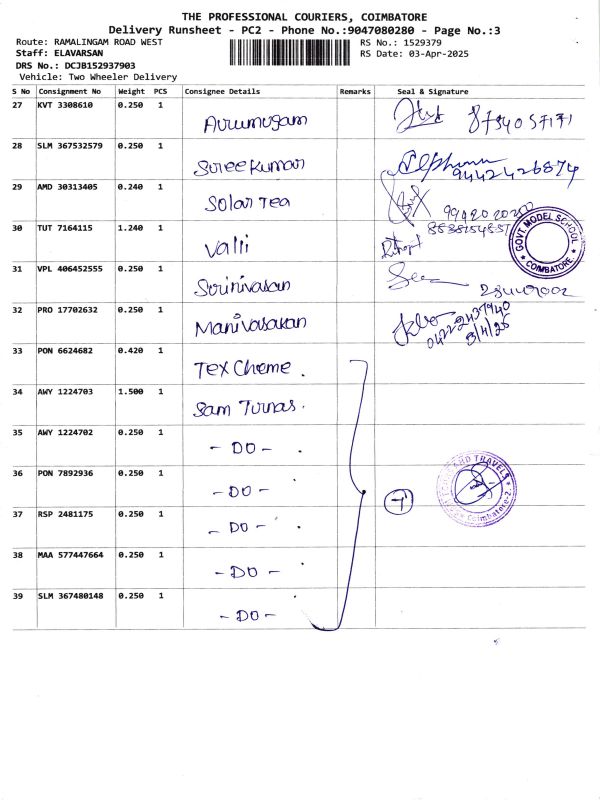 THE PROFESSIONAL COURIERS, COIMBATORE
Delivery Runsheet - PC2 - Phone No.:9047080280 - Page No.:3
Route: RAMALINGAM ROAD WEST RS No.: 1529379
Staff: ELAVARSAN RS Date: 03-Apr-2025
DRS No.: DCJB152937903
Vehicle: Two Wheeler Delivery
S No Consignment No Weight PCS Consignee Details Remarks Seal & Signature
27 KVT 3308610 0.250 1 Arumugam
28 SLM 367532579 0.250 1 Sree Kumar 9442426874
29 AMD 30313405 0.240 1 Solar Tea
30 TUT 7164115 1.240 1 Valli
GOVT. MODEL SCHOOL
COIMBATORE
31 VPL 406452555 0.250 1 Srinivasan
32 PRO 17702632 0.250 1 Manivasakan 04222437940
3/4/25
33 PON 6624682 0.420 1 Tex Cheme.
34 AWY 1224703 1.500 1 Sam Turnas.
35 AWY 1224702 0.250 1 - DO -
36 PON 7892936 0.250 1 - DO -
AND TRAVELS
Coimbatore-2
37 RSP 2481175 0.250 1 - DO -
38 MAA 577447664 0.250 1 - DO -
39 SLM 367480148 0.250 1 - DO -